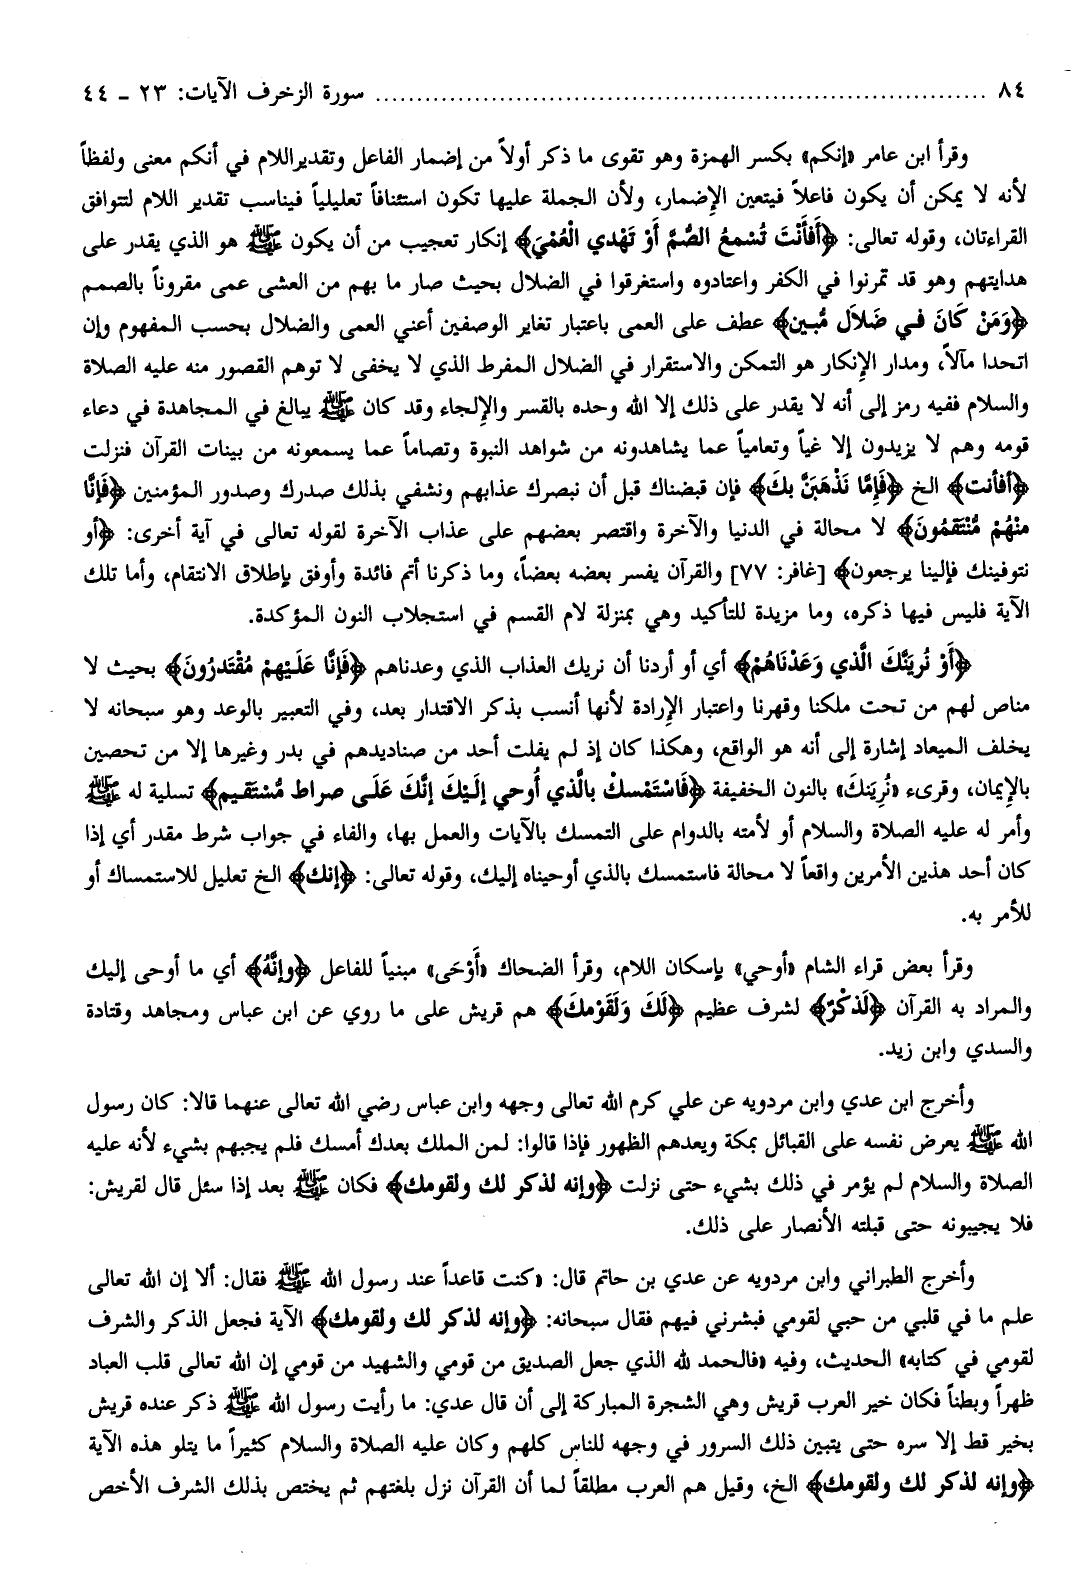 ٨٤ ........................................................ سورة الزخرف الآيات: ٢٣ ـ ٤٤
وقرأ ابن عامر «إنكم» بكسر الهمزة وهو تقوى ما ذكر أولاً من إضمار الفاعل وتقديراللام في أنكم معنى ولفظاً
لأنه لا يمكن أن يكون فاعلاً فيتعين الإِضمار، ولأن الجملة عليها تكون استئنافاً تعليلياً فيناسب تقدير اللام لتتوافق
القراءتان، وقوله تعالى: ﴿أَفَأَنْتَ تُسْمعُ الصُّمَّ أَوْ تَهْدي الْعُمْيَ﴾ إنكار تعجيب من أن يكون ﷺ هو الذي يقدر على
هدايتهم وهو قد تمرنوا في الكفر واعتادوه واستغرقوا في الضلال بحيث صار ما بهم من العشى عمى مقروناً بالصمم
﴿وَمَنْ كَانَ في ضَلاَل مُّبين﴾ عطف على العمى باعتبار تغاير الوصفين أعني العمى والضلال بحسب المفهوم وإن
اتحدا مآلاً، ومدار الإِنكار هو التمكن والاستقرار في الضلال المفرط الذي لا يخفى لا توهم القصور منه عليه الصلاة
والسلام ففيه رمز إلى أنه لا يقدر على ذلك إلا الله وحده بالقسر والإِلجاء وقد كان ﷺ يبالغ في المجاهدة في دعاء
قومه وهم لا يزيدون إلا غياً وتعامياً عما يشاهدونه من شواهد النبوة وتصاماً عما يسمعونه من بينات القرآن فنزلت
﴿أفأنت﴾ الخ ﴿فَإمَّا نَذْهَبَنَّ بكَ﴾ فإن قبضناك قبل أن نبصرك عذابهم ونشفي بذلك صدرك وصدور المؤمنين ﴿فَإنَّا
منْهُمْ مُّنْتَقمُونَ﴾ لا محالة في الدنيا والآخرة واقتصر بعضهم على عذاب الآخرة لقوله تعالى في آية أخرى: ﴿أو
نتوفينك فإلينا يرجعون﴾ [غافر: ٧٧] والقرآن يفسر بعضه بعضاً، وما ذكرنا أتم فائدة وأوفق بإطلاق الانتقام، وأما تلك
الآية فليس فيها ذكره، وما مزيدة للتأكيد وهي بمنزلة لام القسم في استجلاب النون المؤكدة.
﴿أَوْ نُريَنَّكَ الَّذي وَعَدْنَاهُمْ﴾ أي أو أردنا أن نريك العذاب الذي وعدناهم ﴿فَإنَّا عَلَيْهمْ مُقْتَدرُونَ﴾ بحيث لا
مناص لهم من تحت ملكنا وقهرنا واعتبار الإِرادة لأنها أنسب بذكر الاقتدار بعد، وفي التعبير بالوعد وهو سبحانه لا
يخلف الميعاد إشارة إلى أنه هو الواقع، وهكذا كان إذ لم يفلت أحد من صناديدهم في بدر وغيرها إلا من تحصين
بالإِيمان، وقرىء «نُرِيَنكَ» بالنون الخفيفة ﴿فَاسْتَمْسكْ بالَّذي أُوحي إلَيْكَ إنَّكَ عَلَى صراط مُسْتَقيم﴾ تسلية له ﷺ
وأمر له عليه الصلاة والسلام أو لأمته بالدوام على التمسك بالآيات والعمل بها، والفاء في جواب شرط مقدر أي إذا
كان أحد هذين الأمرين واقعاً لا محالة فاستمسك بالذي أوحيناه إليك، وقوله تعالى: ﴿إنك﴾ الخ تعليل للاستمساك أو
للأمر به.
وقرأ بعض قراء الشام «أوحي» بإسكان اللام، وقرأ الضحاك «أَوْحَى» مبنياً للفاعل ﴿وإنَّهُ﴾ أي ما أوحى إليك
والمراد به القرآن ﴿لَذكْرٌ﴾ لشرف عظيم ﴿لَكَ وَلَقَوْمكَ﴾ هم قريش على ما روي عن ابن عباس ومجاهد وقتادة
والسدي وابن زيد.
وأخرج ابن عدي وابن مردويه عن علي كرم الله تعالى وجهه وابن عباس رضي الله تعالى عنهما قالا: كان رسول
الله ﷺ يعرض نفسه على القبائل بمكة ويعدهم الظهور فإذا قالوا: لمن الملك بعدك أمسك فلم يجبهم بشيء لأنه عليه
الصلاة والسلام لم يؤمر في ذلك بشيء حتى نزلت ﴿وإنه لذكر لك ولقومك﴾ فكان ﷺ بعد إذا سئل قال لقريش:
فلا يجيبونه حتى قبلته الأنصار على ذلك.
وأخرج الطبراني وابن مردويه عن عدي بن حاتم قال: «كنت قاعداً عند رسول الله ﷺ فقال: ألا إن الله تعالى
علم ما في قلبي من حبي لقومي فبشرني فيهم فقال سبحانه: ﴿وإنه لذكر لك ولقومك﴾ الآية فجعل الذكر والشرف
لقومي في كتابه» الحديث، وفيه «فالحمد لله الذي جعل الصديق من قومي والشهيد من قومي إن الله تعالى قلب العباد
ظهراً وبطناً فكان خير العرب قريش وهي الشجرة المباركة إلى أن قال عدي: ما رأيت رسول الله ﷺ ذكر عنده قريش
بخير قط إلا سره حتى يتبين ذلك السرور في وجهه للناس كلهم وكان عليه الصلاة والسلام كثيراً ما يتلو هذه الآية
﴿وإنه لذكر لك ولقومك﴾ الخ، وقيل هم العرب مطلقاً لما أن القرآن نزل بلغتهم ثم يختص بذلك الشرف الأخص